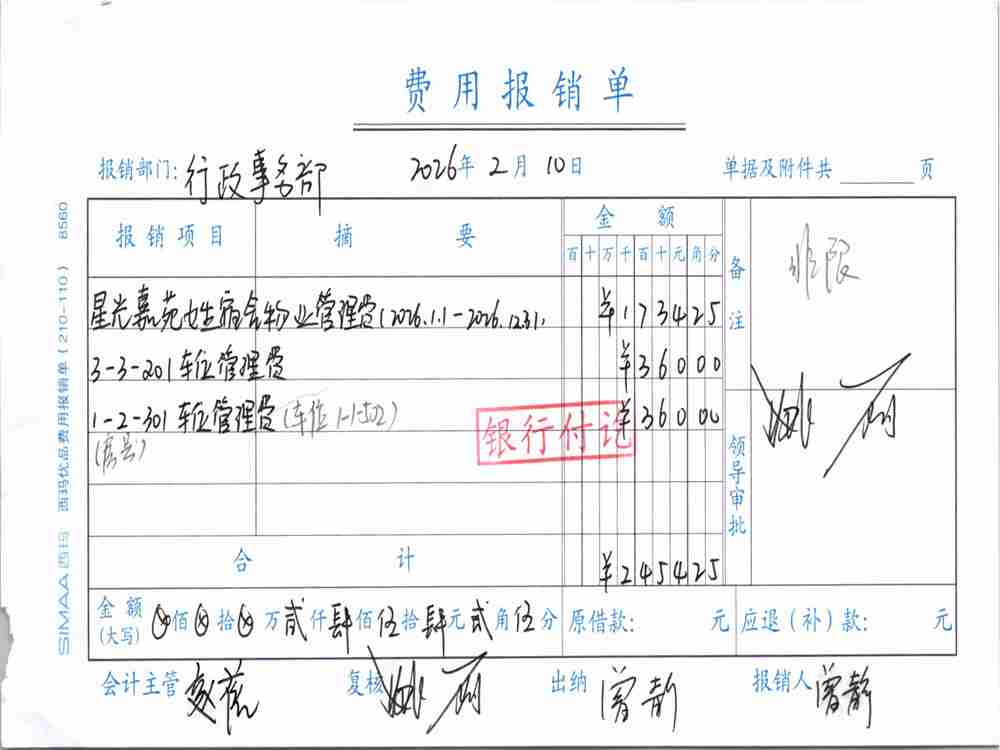 费用报销单
报销部门: 行政事务部 2026年 2月 10日 单据及附件共 页
报销项目 摘要 金额 备注 非限
百十万千百十元角分
星光嘉苑 宿舍物业管理费(2026.1.1-2026.12.31,
¥173425
3-3-201 车位管理费 ¥36000
1-2-301 车位管理费(车位1-1-502) ¥36000
(房号)
银行付讫
领导审批
合计 ¥245425
金额(大写) ⊗佰⊗拾⊗万贰仟肆佰伍拾肆元贰角伍分 原借款: 元 应退(补)款: 元
会计主管 复核 出纳 曾静 报销人 曾静
SIMAA 西玛 西玛优品费用报销单(210-110) 8560